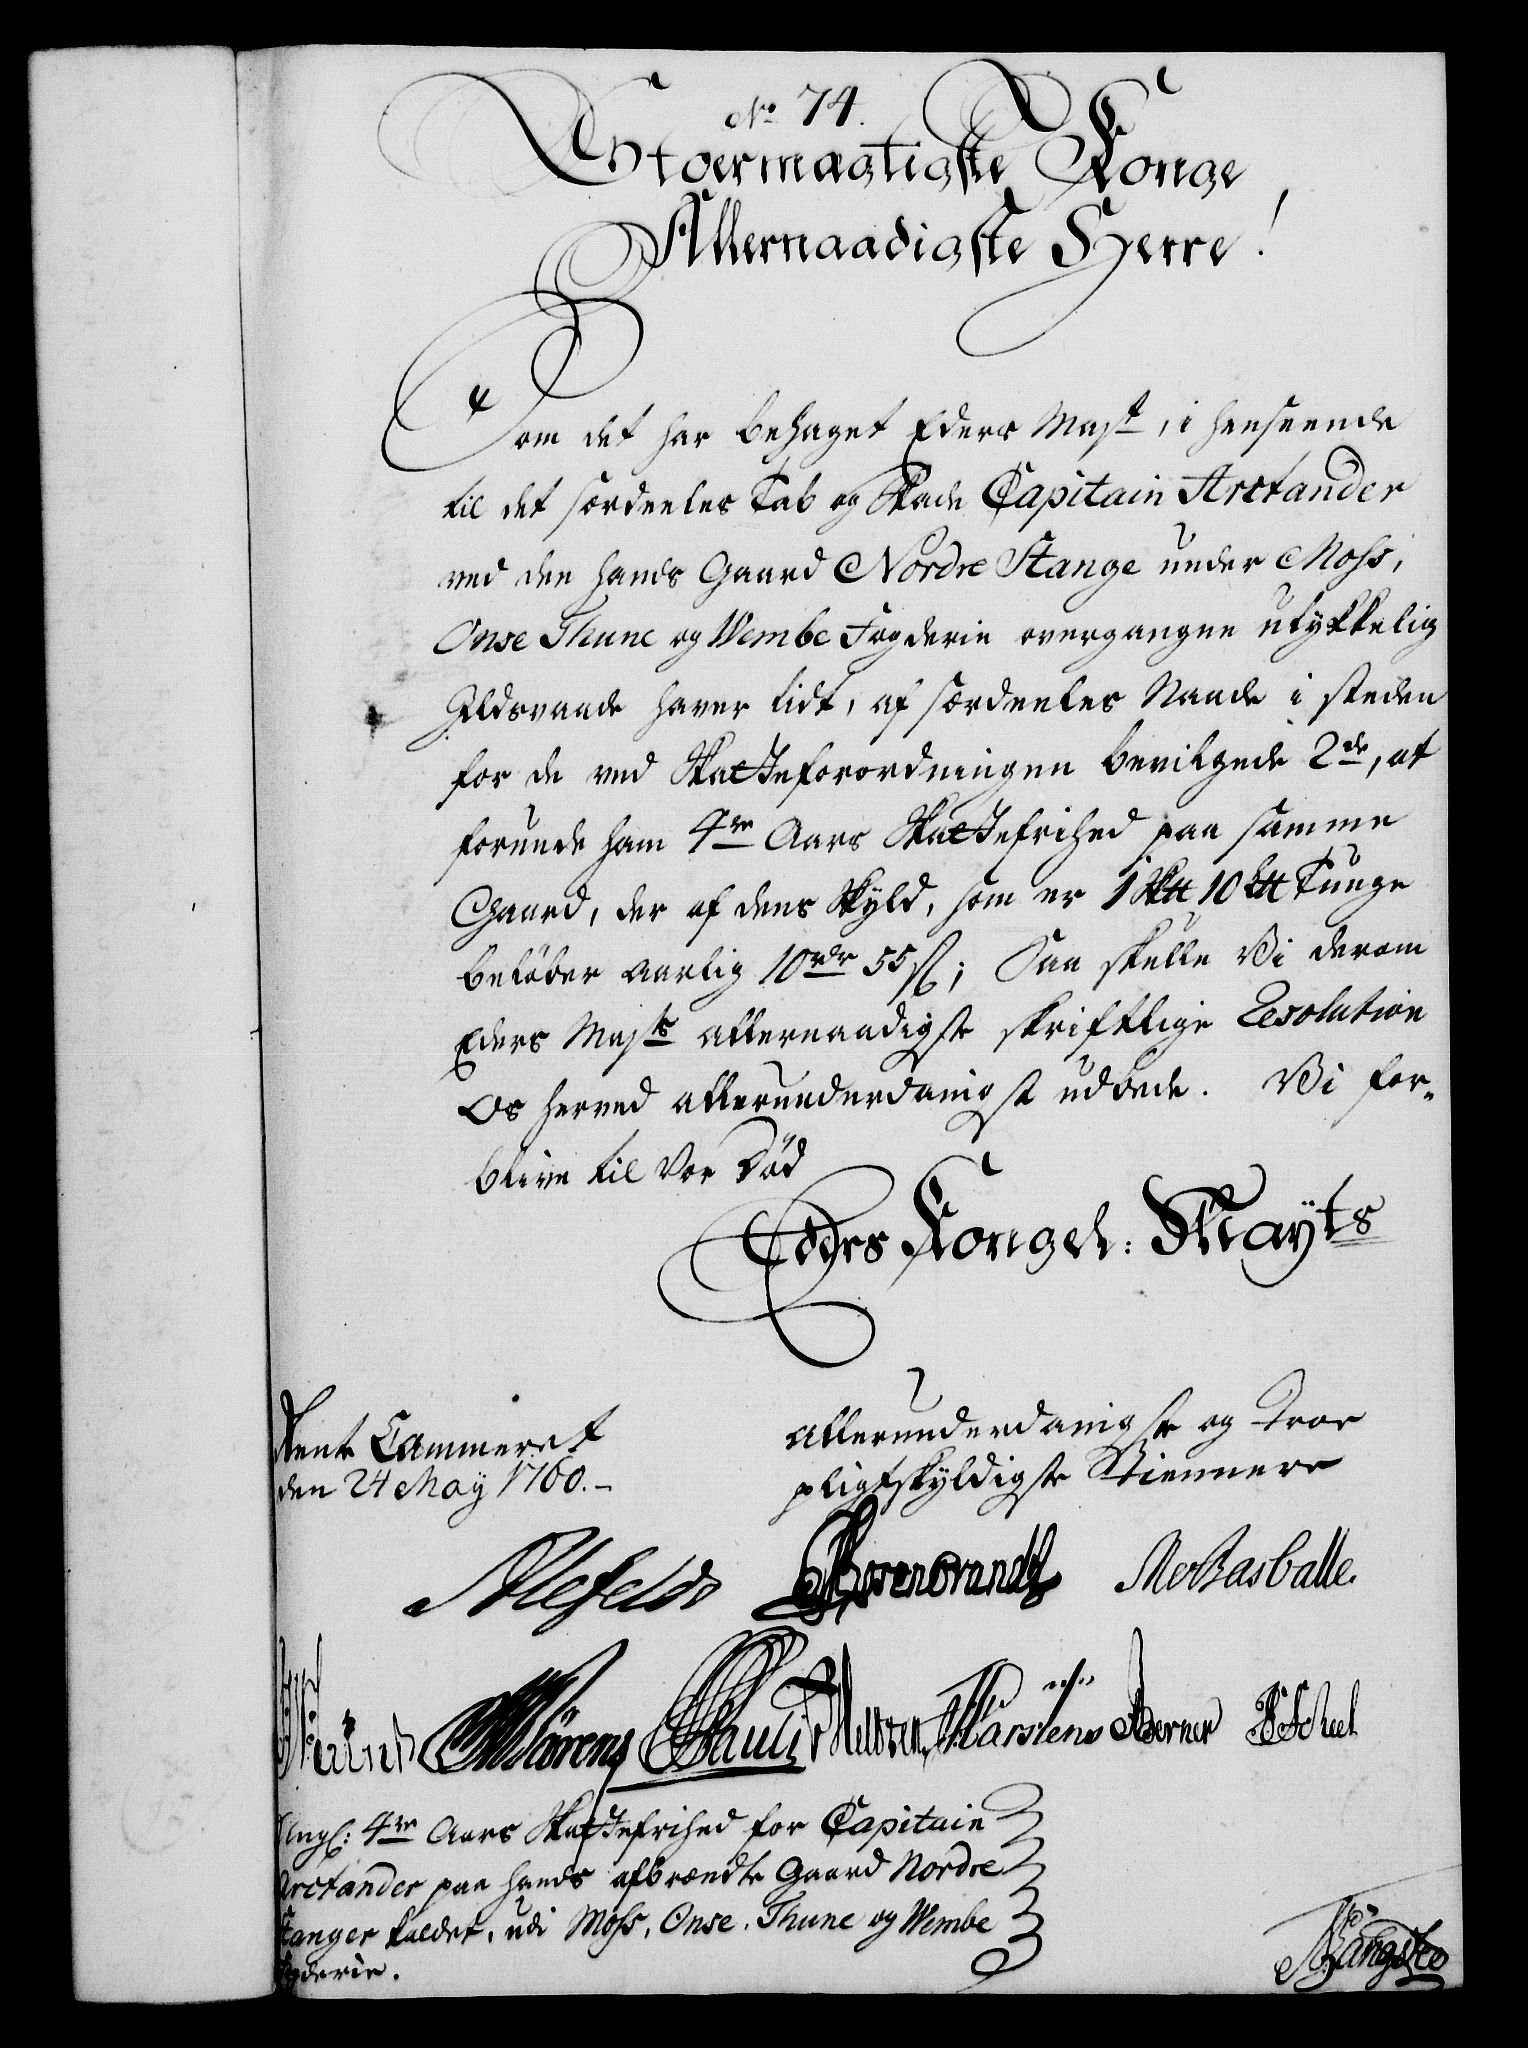 No 74.
Stoermægtigste Konge
Allernaadigste Herre!
Som det har behaget Eders Mayt, i henseende
til det særdeeles Tab og Skade Capitain Arctander
ved den hands Gaard Nordre Stange under Moss,
Onse Thune og Wembe Fogderie overgangne ulykkelig
Ildsvaade haver lidt, af særdeeles Naade i steden
for de ved Skatteforordningen bevilgede 2de, at
forunde ham 4re Aars Skattefrihed paa samme
Gaard, der af dens Skyld, som er 1 Sktt 10 Ltt Tunge
beløber aarlig 10 rdr 55 s; Saa skulle Vi derom
Eders Mayts allernaadigste skriftlige Resolution
Os herved allerunderdanigst udbede. Vi for-
blive til Vor Død
Eders Kongel: Mayts
Rente Cammeret
den 24 May 1760.-
allerunderdanigste og Troe
pligtskyldigste Tiennere
Alefeldt Rosenbrandt
Mörens Pauli Karstens Berner Scheel
Ang: 4re Aars Skattefrihed for Capitain
Arctander paa hands afbrændte Gaard Nordre
Stanger kaldet, udi Moss, Onse, Thune og Wembe
Fogderie.